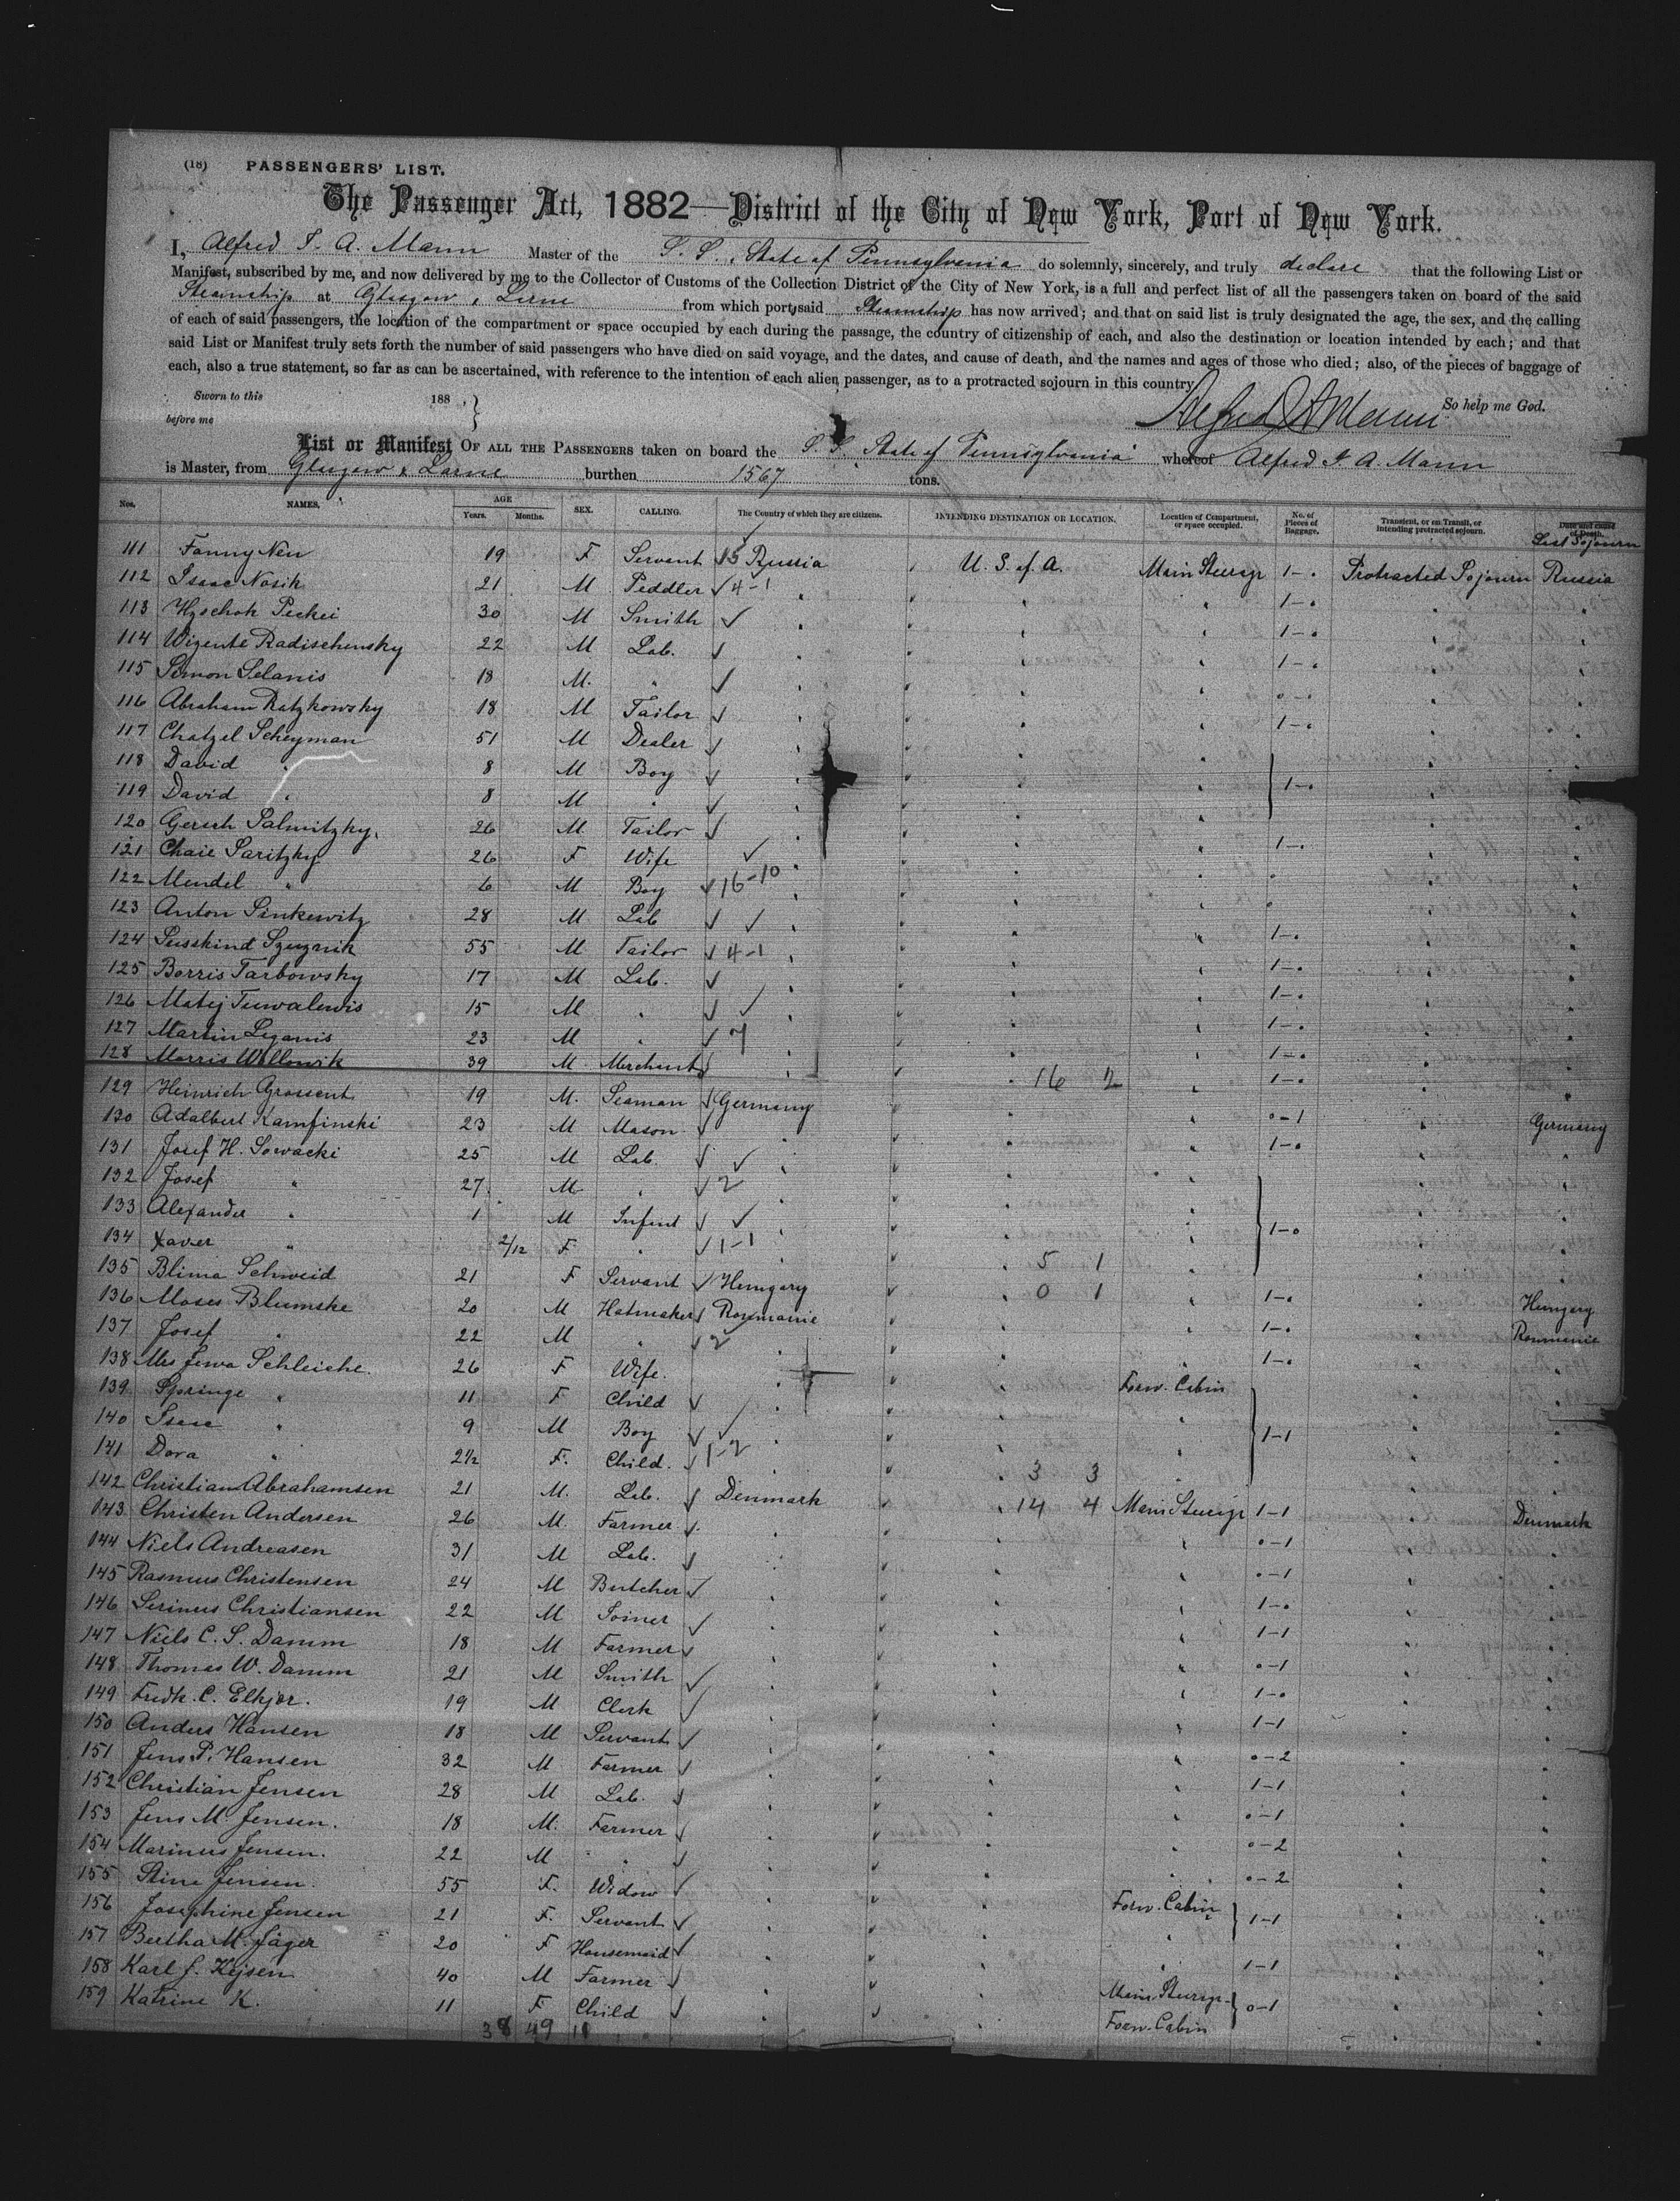 (18) PASSENGERS' LIST.
The Passenger Act, 1882—District of the City of New York, Port of New York.
I, Alfred J. A. Mann Master of the S. S. State of Pennsylvania do solemnly, sincerely, and truly declare that the following List or
Manifest, subscribed by me, and now delivered by me to the Collector of Customs of the Collection District of the City of New York, is a full and perfect list of all the passengers taken on board of the said
Steamship at Glasgow & Larne from which port said Steamship has now arrived; and that on said list is truly designated the age, the sex, and the calling
of each of said passengers, the location of the compartment or space occupied by each during the passage, the country of citizenship of each, and also the destination or location intended by each; and that
said List or Manifest truly sets forth the number of said passengers who have died on said voyage, and the dates, and cause of death, and the names and ages of those who died; also, of the pieces of baggage of
each, also a true statement, so far as can be ascertained, with reference to the intention of each alien passenger, as to a protracted sojourn in this country
Sworn to this 188 So help me God.
before me Alfred J A Mann
List or Manifest OF ALL THE PASSENGERS taken on board the S. S. State of Pennsylvania whereof Alfred J. A. Mann
is Master, from Glasgow & Larne burthen 1567 tons.
Nos. NAMES. AGE Years. Months. SEX. CALLING. The Country of which they are citizens. INTENDING DESTINATION OR LOCATION. Location of Compartment, or space occupied. No. of Pieces of Baggage. Transient, or en Transit, or intending protracted sojourn. Date and cause of Death. Last Sojourn
111 Fanny Neu 19 F Servant 15 Russia U. S. of A. Main Steerage 1-0 Protracted Sojourn Russia
112 Isaac Nosik 21 M Peddler 4-1 " 1-0
113 Hyschok Peckei 30 M Smith 1-0
114 Wizente Radischensky 22 M Lab. 1-0
115 Simon Selanis 18 M. " 0-0
116 Abraham Ratzkowsky 18 M Tailor 1-0
117 Chatzel Scheyman 51 M Dealer
118 David " 8 M Boy 1-0
119 David " 8 M "
120 Gersch Salmitzky 26 M Tailor 1-0
121 Chaie Saritzky 26 F Wife
122 Mendel " 6 M Boy 16-10
123 Anton Sinkewitz 28 M Lab 1-0
124 Susskind Szuznik 55 M Tailor 4-1 1-0
125 Borris Tarbowsky 17 M Lab. 1-0
126 Matij Tuwalewis 15 M " 1-0
127 Martin Leganis 23 M " 7 1-0
128 Morris Willowik 39 M Merchant 16 2 1-0
129 Heinrich Grossent 19 M. Seaman Germany 0-1 Germany
130 Adalbert Kamfinski 23 M Mason 1-0
131 Josef H. Sowacki 25 M Lab.
132 Josef " 27 M " 2
133 Alexander " 1 M Infant 1-0
134 Xaver " 2/12 F " 1-1 5 1
135 Blima Schweid 21 F Servant Hungary 0 1 1-0 Hungary
136 Moses Blumske 20 M Hatmaker Roumanie 1-0 Roumenie
137 Josef " 22 M " 2 1-0
138 Mrs Jewa Schleiche 26 F Wife. Forw. Cabin
139 Springe " 11 F Child
140 Isaac " 9 M Boy 1-1
141 Dora " 2½ F. Child. 1-2 3 3
142 Christian Abrahamsen 21 M. Lab. Denmark 14 4 Main Steerage 1-1 Denmark
143 Christen Andersen 26 M. Farmer 0-1
144 Niels Andreasen 31 M Lab. 0-1
145 Rasmus Christensen 24 M Butcher 1-0
146 Serinus Christiansen 22 M Joiner 1-1
147 Niels C. S. Damm 18 M Farmer 0-1
148 Thomas W. Damm 21 M Smith 1-0
149 Fredk. C. Elkjor. 19 M Clerk 1-1
150 Anders Hansen 18 M Servant 0-2
151 Jens P. Hansen 32 M Farmer 1-1
152 Christian Jensen 28 M Lab. 0-1
153 Jens M. Jensen. 18 M. Farmer 0-2
154 Marinus Jensen. 22 M " 0-2
155 Stine Jensen. 55 F. Widow Forw. Cabin
156 Josephine Jensen 21 F. Servant " 1-1
157 Bertha M. Jäger 20 F Housemaid " 1-1
158 Karl J. Kejsen 40 M Farmer Main Steerage
159 Katrine K. 11 F Child Forw. Cabin 0-1
38 49 11